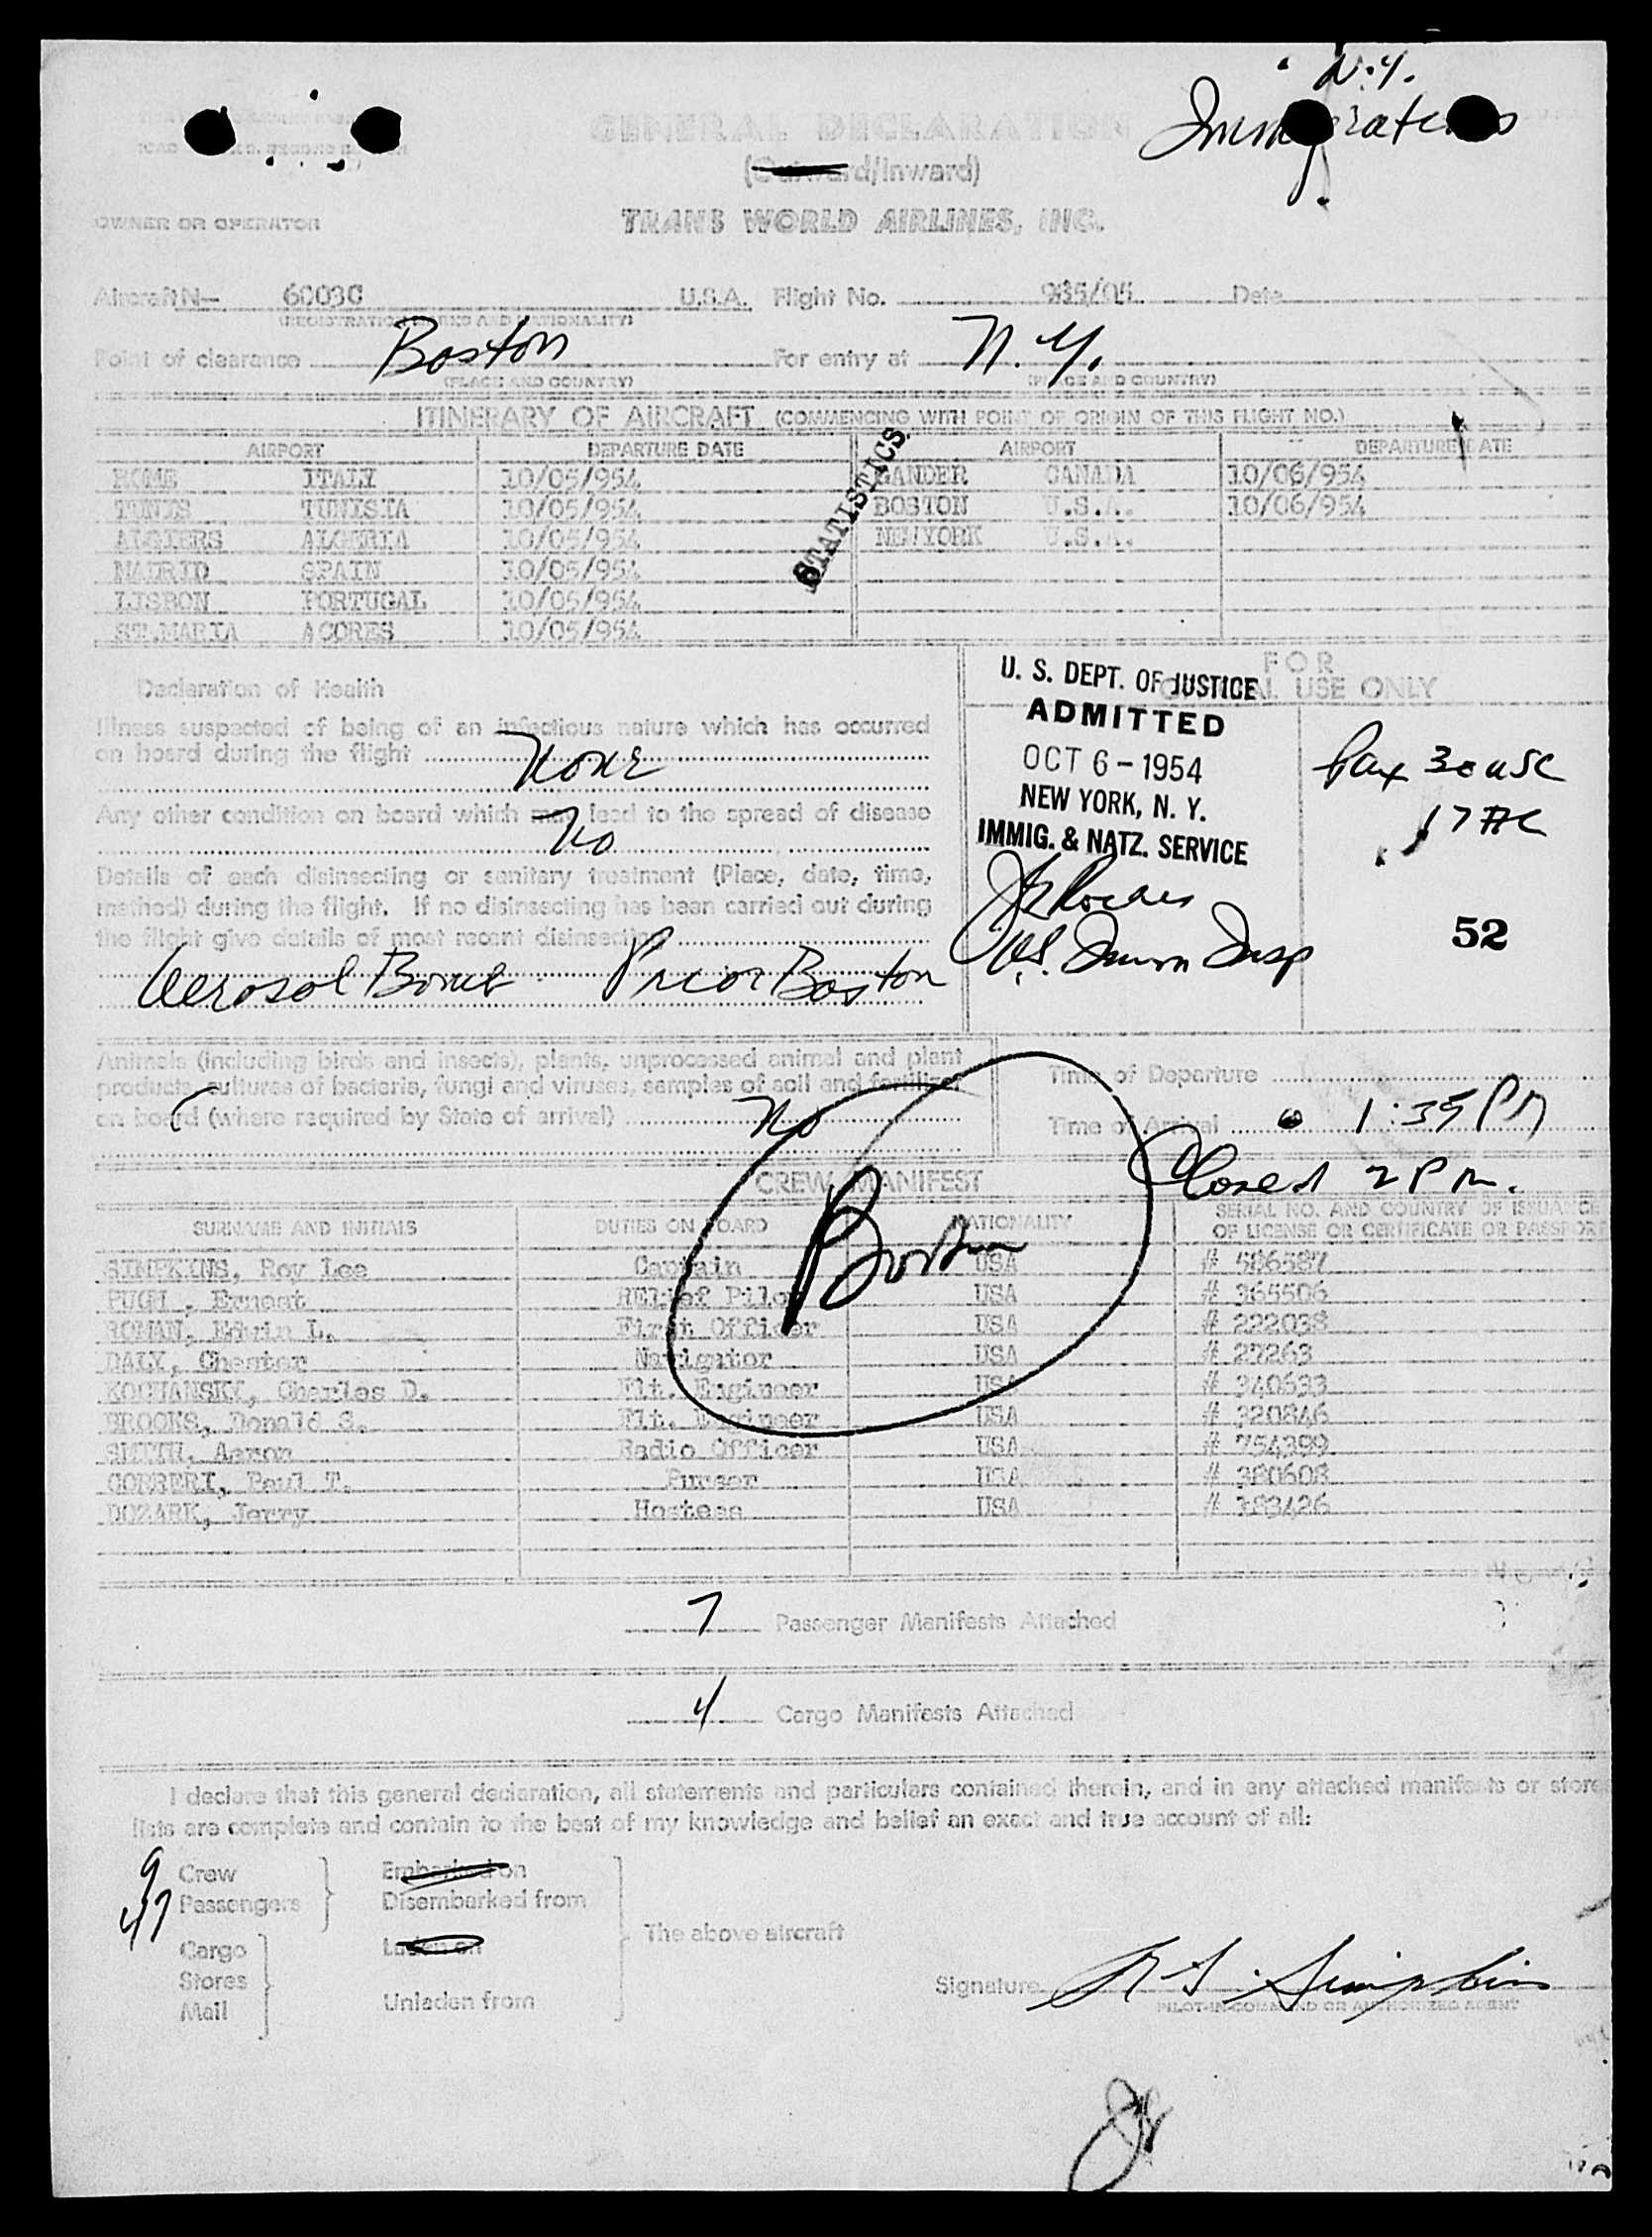 N.Y.
GENERAL DECLARATION
(Outward/Inward)
OWNER OR OPERATOR TRANS WORLD AIRLINES, INC.
Aircraft N— 6003C U.S.A. Flight No. Date
(REGISTRATION MARKS AND NATIONALITY)
Point of clearance Boston For entry at N.Y.
(PLACE AND COUNTRY) (PLACE AND COUNTRY)
ITINERARY OF AIRCRAFT (COMMENCING WITH POINT OF ORIGIN OF THIS FLIGHT NO.)
AIRPORT DEPARTURE DATE AIRPORT DEPARTURE DATE
ROME ITALY 10/05/954 GANDER CANADA 10/06/954
TUNIS TUNISIA 10/05/954 BOSTON U.S.A. 10/06/954
ALGIERS ALGERIA 10/05/954 NEWYORK U.S.A.
MADRID SPAIN 10/05/954
LISBON PORTUGAL 10/05/954
ST.MARIA ACORES 10/05/954
STATISTICS
FOR
OFFICIAL USE ONLY
Declaration of Health
Illness suspected of being of an infectious nature which has occurred
on board during the flight None
Any other condition on board which may lead to the spread of disease
No
Details of each disinsecting or sanitary treatment (Place, date, time,
method) during the flight. If no disinsecting has been carried out during
the flight give details of most recent disinsecting
Aerosol Bomb Prior Boston
U. S. DEPT. OF JUSTICE
ADMITTED
OCT 6 - 1954
NEW YORK, N. Y.
IMMIG. & NATZ. SERVICE
U.S. Immn Insp
Pax 30 USC
17 AC
52
Animals (including birds and insects), plants, unprocessed animal and plant
products, cultures of bacteria, fungi and viruses, samples of soil and fertilizer
on board (where required by State of arrival) No
Time of Departure
Time of Arrival 1:35 PM
Closed 2 PM.
CREW MANIFEST
Boston
SURNAME AND INITIALS DUTIES ON BOARD NATIONALITY SERIAL NO. AND COUNTRY OF ISSUANCE
OF LICENSE OR CERTIFICATE OR PASSPORT
SIMPKINS, Roy Lee Captain USA # 586587
PUGH, Ernest RElief Pilot USA # 365506
ROMAN, Edwin L. First Officer USA # 222038
DALY, Chester Navigator USA # 27263
KOCHANSKY, Charles D. Flt. Engineer USA # 340633
BROOKS, Donald S. Flt. Engineer USA # 320846
SMITH, Aaron Radio Officer USA # 754399
GOBBERI, Paul T. Purser USA # 380608
DOZARK, Jerry Hostess USA # 383426
7 Passenger Manifests Attached
4 Cargo Manifests Attached
I declare that this general declaration, all statements and particulars contained therein, and in any attached manifests or stores
lists are complete and contain to the best of my knowledge and belief an exact and true account of all:
9 Crew Embarked on
47 Passengers Disembarked from
The above aircraft
Cargo Laden on
Stores
Mail Unladen from
Signature R L Simpkins
PILOT-IN-COMMAND OR AUTHORIZED AGENT